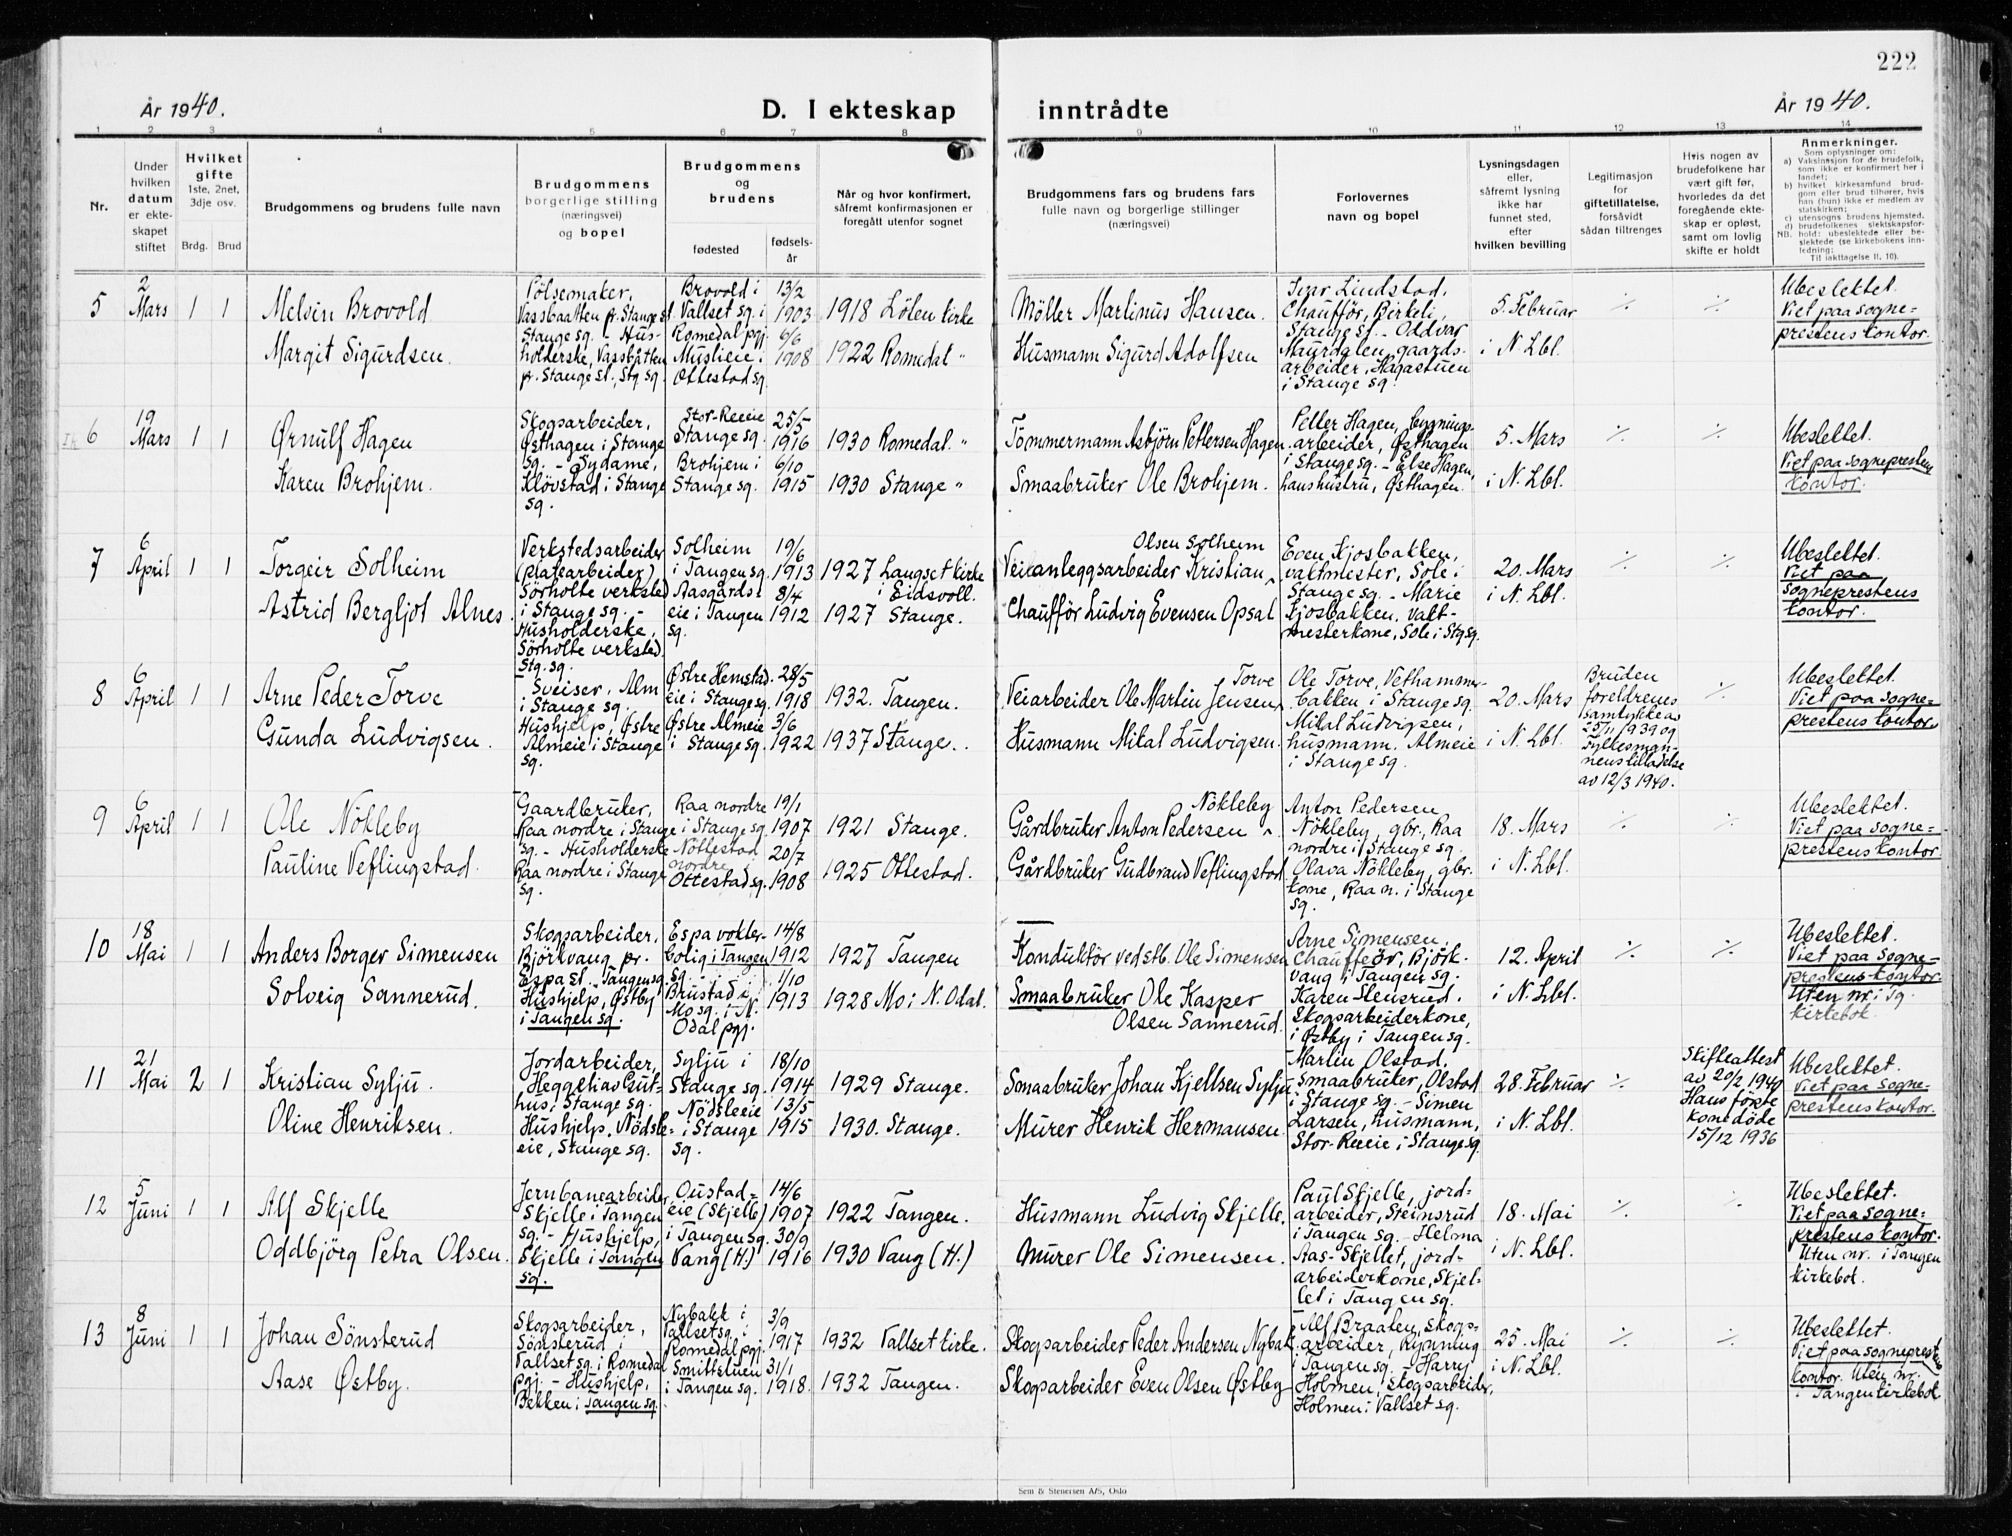 222
År 1940.
D. I ekteskap
inntrådte
År 1940.
1 2 3 4 5 6 7 8 9 10 11 12 13 14
Nr.
Under hvilken datum er ekteskapet stiftet
Hvilket gifte
1ste, 2net, 3dje osv.
Brdg. Brud
Brudgommens og brudens fulle navn
Brudgommens borgerlige stilling (næringsvei) og bopel
Brudgommens og brudens
fødested
fødselsår
Når og hvor konfirmert, såfremt konfirmasjonen er foregått utenfor sognet
Brudgommens fars og brudens fars fulle navn og borgerlige stillinger (næringsvei)
Forlovernes navn og bopel
Lysningsdagen eller, såfremt lysning ikke har funnet sted, efter hvilken bevilling
Legitimasjon for giftetillatelse, forsåvidt sådan tiltrenges
Hvis nogen av brudefolkene har vært gift før, hvorledes da det foregående ekteskap er opløst, samt om lovlig skifte er holdt
Anmerkninger.
Som oplysninger om:
a) Vaksinasjon for de brudefolk, som ikke er konfirmert her i landet;
b) hvilket kirkesamfund brudgom eller brud tilhører, hvis han (hun) ikke er medlem av statskirken;
c) utensogns brudens hjemsted.
d) brudefolkenes slektskapsforhold: ubeslektede eller beslektede (se kirkebokens innledning;
NB.
Til iakttagelse II, 10).
5
2 Mars
1 1
Melvin Brovold
Margit Sigurdsen.
Pölsemaker,
Vassbaatten pr. Stange st.
Stange sg. - Hus-
holderske, Vassbåtten
pr. Stange st., Stg sg.
Brovold i
Vallset sg. i
Romedal pgj.
Muslieie i
Ottestad sg.
13/2
1903
6/6
1908
1918 Löten kirke
1922 Romedal "
Möller Martinus Hansen.
Husmann Sigurd Adolfsen
Ivar Lindstad,
Chaufför, Birkeli,
Stange st. - Oddvar
Maurdalen, gaards-
arbeider, Hagastuen
i Stange sg.
5. Februar
i N. Lbl.
·/·
·/·
Ubeslektet.
Viet paa sogne-
prestens kontor.
6
19 Mars
1 1
Ørnulf Hagen
Karen Brohjem.
Skogsarbeider,
Østhagen i Stange
sg. - Sydame,
Klövstad i Stange
sg.
Stor-Reeie
Stange sg.
Brohjem i
Stange sg.
25/5
1916
6/10
1915
1930 Romedal. "
1930 Stange "
Tömmermann Asbjörn Pettersen Hagen
Smaabruker Ole Brohjem.
Petter Hagen, bygnings-
arbeider, Østhagen
i Stange sg. - Else Hagen,
hushustru, Østhagen.
5. Mars
i N. Lbl.
·/·
·/·
Ubeslektet.
Viet paa sogneprestens
kontor.
7
6 April
1 1
Torgeir Solheim
Astrid Bergljot Alnes.
Verkstedsarbeider
(platearbeider)
Sörholte verksted
i Stange sg. -
Husholderske,
Sörholte verksted,
Stg. sg.
Solheim
i Tangen sg.
Aasgårds-
eie i Tangen
sg.
19/6
1913
8/4
1912
1927 Langset kirke
i Eidsvoll.
1927 Stange.
Olsen Solheim
Veianleggsarbeider Kristian
Chaufför Ludvig Evensen Opsal
Even Kjosbakken,
vaktmester, Sole i
Stange sg. - Marie
Kjosbakken, vakt-
mesterkone, Sole i Stg sg.
20. Mars
i N. Lbl.
·/·
·/·
Ubeslektet.
Viet paa
sogneprestens
kontor.
8
6 April
1 1
Arne Peder Torve
Gunda Ludvigsen.
Sveiser, Alm
i Stange sg.
Hushjelp, Østre
Almeie i Stange
sg.
Østre Hemstad-
eie i Stange sg.
Østre Almeie
i Stange sg.
28/5
1918
3/6
1922
1932. Tangen.
1937 Stange.
Torve
Veiarbeider Ole Martin Jensen
Husmann Mikal Ludvigsen.
Ole Torve, Vethammer-
bakken i Stange sg.
Mikal Ludvigsen,
husmann, Almeie
i Stange sg.
20. Mars
i N. Lbl.
Bruden
foreldrenes
samtykke av
25/11 1939 og
Fylkesman-
nens tilladelse
av 12/3 1940.
·/·
Ubeslektet.
Viet paa sogne-
prestens kontor.
9
6 April
1 1
Ole Nökleby
Pauline Veflingstad.
Gaardbruker,
Raa nordre i Stange
sg. - Husholderske
Raa nordre i Stange
sg.
Raa nordre
i Stange sg.
Nöttestad
nordre
Ottestad sg.
19/1
1907
20/7
1908
1921 Stange.
1925 Ottestad.
Nökleby
Gårdbruker Anton Pedersen
Gårdbruker Gudbrand Veflingstad
Anton Pedersen
Nökleby, gbr., Raa
nordre i Stange sg.
Olava Nökleby, gbr.
kone, Raa n. i Stange
sg.
18. Mars
i N. Lbl.
·/·
·/·
Ubeslektet.
Viet paa sogne-
prestens kontor.
10
18 Mai
1 1
Anders Borger Simensen
Solveig Sannerud.
Skogsarbeider,
Björkvang pr.
Espa st. Tangen sg.
Hushjelp, Østby
i Tangen sg.
Espa vokter-
bolig i Tangen
sg.
Brustad i
Mo sg. i N.
Odal pgj.
14/8
1912
1/10
1913
1927 Tangen
1928 Mo i N. Odal.
Konduktör ved stb. Ole Simensen
Smaabruker Ole Kasper
Olsen Sannerud.
Arne Simensen,
Chaufför, Björk-
vang i Tangen sg.
Karen Stensrud,
Skogsarbeiderkone,
i Østby i Tangen sg.
12. April
i N. Lbl.
·/·
·/·
Ubeslektet.
Viet paa sogne-
prestens kontor
Uten nr. i Tg.
kirkebok.
11
21 Mai
2 1
Kristian Sylju.
Oline Henriksen.
Jordarbeider,
Heggelias Gut-
hus i Stange sg.
Hushjelp, Nödsle-
eie, Stange sg.
Sylju i
Stange sg.
Nödsleeie
i Stange
sg.
18/10
1914
13/5
1915
1929 Stange.
1930. Stange.
Smaabruker Johan Kjellsen Sylju
Murer Henrik Hermansen.
Martin Olstad,
smaabruker, Olstad
i Stange sg. - Simen
Larsen, husmann,
Stor-Reeie i Stange sg.
28. Februar
i N. Lbl.
·/·
Skifteattest
av 20/2 1940
Hans förste
kone döde
15/12 1936
Ubeslektet.
Viet paa sogne-
prestens kontor.
12
5 Juni
1 1
Alf Skjelle
Oddbjörg Petra Olsen.
Jernbanearbeider
Skjelle i Tangen
sg. - Hushjelp,
Skjelle i Tangen
sg.
Oustad-
eie (Skjelle)
i Tangen sg.
Vang (H.)
14/6
1907
30/9
1916
1922 Tangen.
1930 Vang (H.)
Husmann Ludvig Skjelle.
Murer Ole Simensen.
Paul Skjelle, jord-
arbeider, Steinsrud
i Tangen sg. - Helma
Aas-Skjellet, jord-
arbeiderkone, Skjel-
let i Tangen sg.
18. Mai
i N. Lbl.
·/·
·/·
Ubeslektet.
Viet paa sogne-
prestens kontor.
Uten nr. i Tangen
kirkebok.
13
8 Juni
1 1
Johan Sönsterud
Aase Østby.
Skogsarbeider,
Sönsterud i
Vallset sg. i Romedal
pgj. - Hushjelp,
Bekken i Tangen sg.
Nybakk i
Vallset sg. i
Romedal pgj.
Smittstuen
i Tangen sg.
3/9
1917
31/1
1918.
1932 Vallset kirke.
1932 Tangen.
Skogsarbeider Peder Andersen Nybak
Skogsarbeider Even Olsen Østby
Alf Braaten, skogs-
arbeider, Rynning
i Tangen sg. - Harry
Holmen, skogsarbeider,
Holmen i Vallset sg.
25. Mai
i N. Lbl.
·/·
·/·
Ubeslektet.
Viet paa sogneprestens
kontor. Uten nr.
i Tangen kirkebok
Sem & Stenersen A/S, Oslo